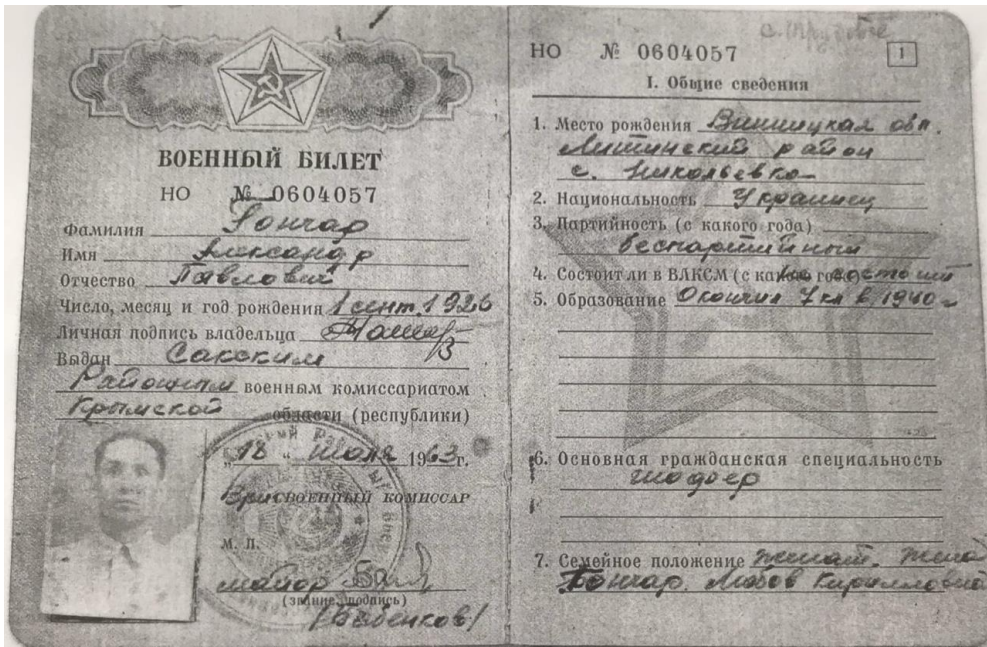 ВОЕННЫЙ БИЛЕТ
НО № 0604057
Фамилия Гончар
Имя Александр
Отчество Павлович
Число, месяц и год рождения 1 сент. 1926
Личная подпись владельца
Выдан Сакским
Районным военным комиссариатом
Крымской области (республики)
„18“ июля 1963 г.
Врис ВОЕННЫЙ КОМИССАР
М. П.
майор
(звание, подпись)
/Бабенков/
с. Трудовое
НО № 0604057
1
I. Общие сведения
1. Место рождения Винницкая обл.
Литинский район
с.
2. Национальность Украинец
3. Партийность (с какого года)
беспартийный
4. Состоит ли в ВЛКСМ (с какого года) не состоит
5. Образование Окончил 7 кл в 1940 г
6. Основная гражданская специальность
шофер
7. Семейное положение женат. Жена
Гончар Любов Кирилловна